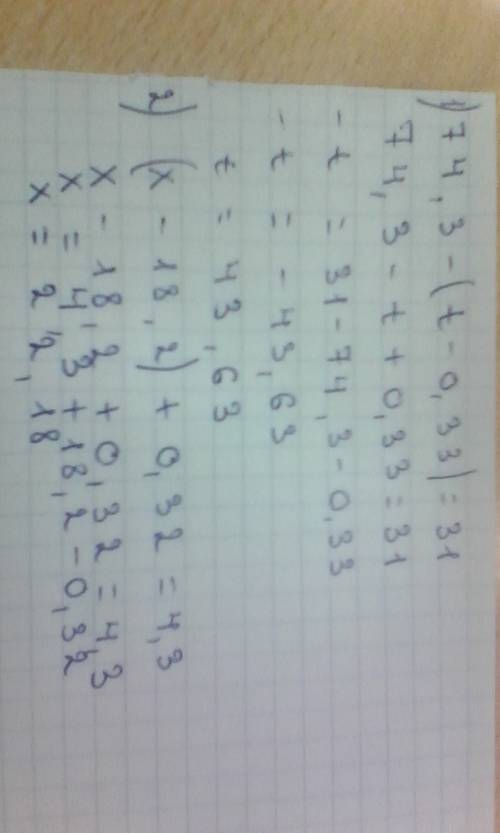 1) 74,3-(t-0,33)=31
74,3-t+0,33=31
-t=31-74,3-0,33
-t=-43,63
t=43,63
2) (x-18,2)+0,32=4,3
x-18,2+0,32=4,3
x=4,3+18,2-0,32
x=22,18